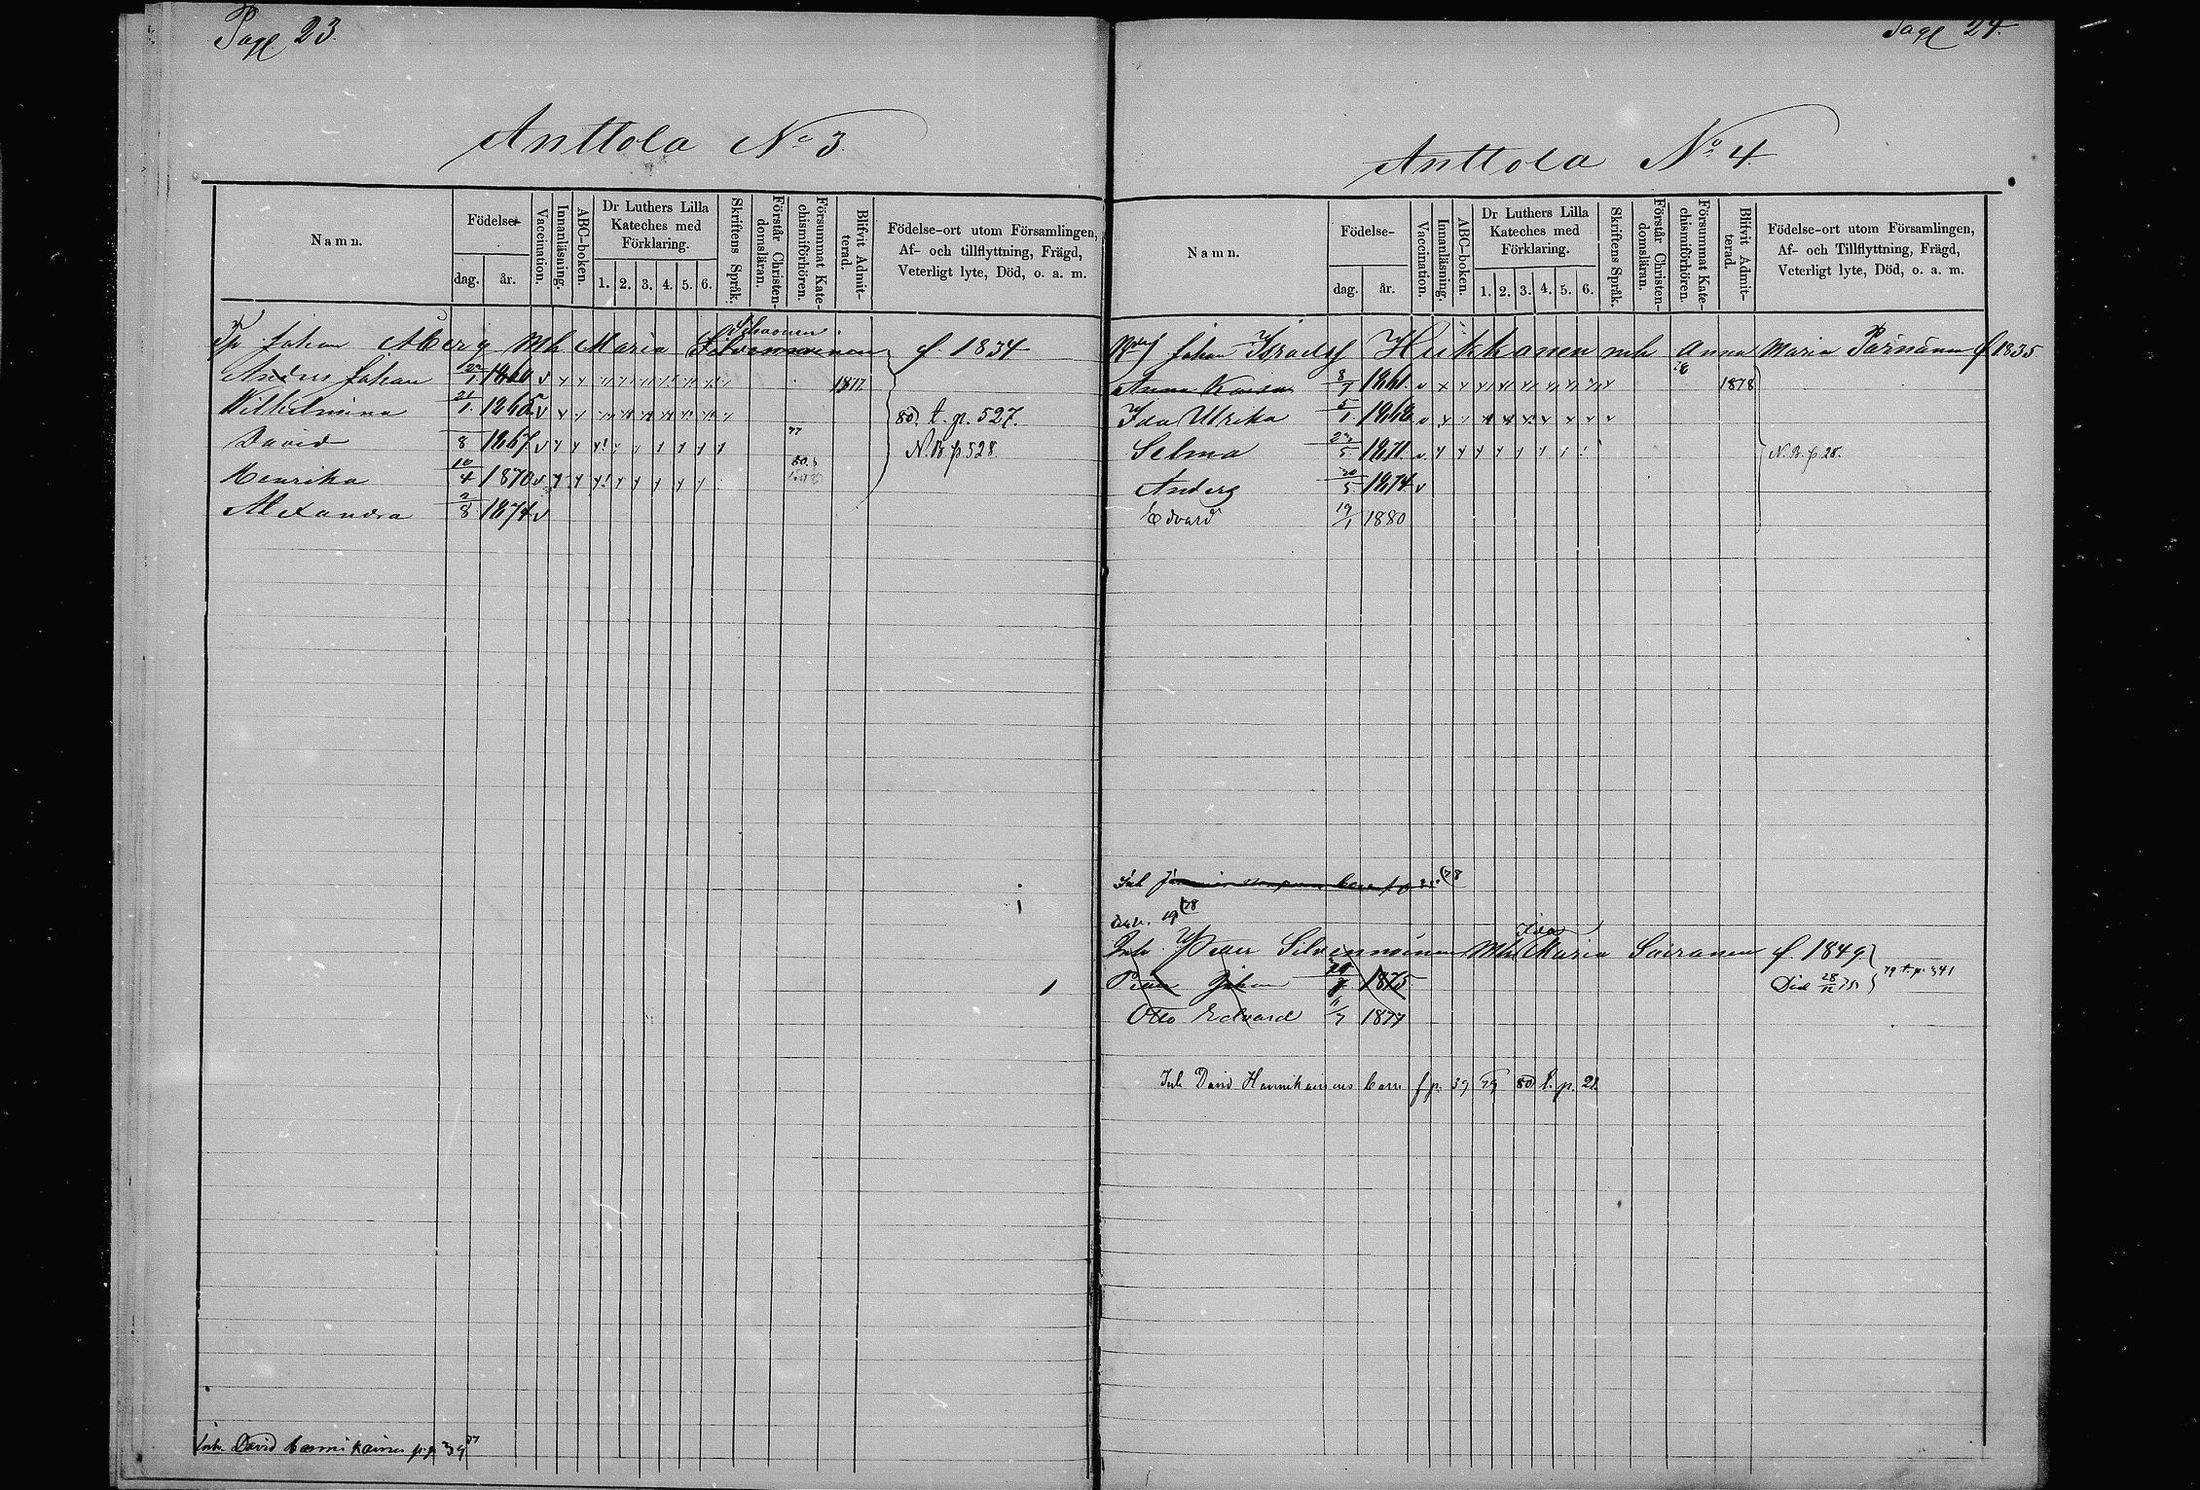 Page 23.
Anttola No 3.
Namn.
Födelse-
dag.
år.
Vaccination.
Innanläsning.
ABC-boken.
Dr Luthers Lilla
Kateches med
Förklaring.
1. 2. 3. 4. 5. 6.
Skriftens Språk.
Förstår Christen-
domsläran.
Försummat Kate-
chismiförhören.
Blifvit Admit-
terad.
Födelse-ort utom Församlingen,
Af- och tillflyttning, Frägd,
Veterligt lyte, Död, o. a. m.
Johan Åberg Mh Maria Silvennoinen f. 1834
Anders Johan 1860 v 1877
Wilhelmina 21/1 1865 v 80. t. p. 527.
David 8 1867 v 77 N.B. p. 528.
Henrika 10/4 1870 v 80.
Alexandra 2/8 1874 v
Inh. David p. 39 77
Page 24.
Anttola No 4
Namn.
Födelse-
dag.
år.
Vaccination.
Innanläsning.
ABC-boken.
Dr Luthers Lilla
Kateches med
Förklaring.
1. 2. 3. 4. 5. 6.
Skriftens Språk.
Förstår Christen-
domsläran.
Försummat Kate-
chismiförhören.
Blifvit Admit-
terad.
Födelse-ort utom Församlingen,
Af- och Tillflyttning, Frägd,
Veterligt lyte, Död, o. a. m.
Johan Israelsf Hukkanen mh Anna Maria Pärnänen f 1835
Anna Kaisa 8/7 1861 v 1878
Ida Ulrika 5/1 1868 v
Selma 23/5 1871 v N.B. p. 28.
Anders 20/5 1874 v
Edvard 19/1 1880
Inh 78
19 78
Inh. Petter Silvennoinen Mh Ida Maria Sairanen f. 1849
Petter Johan 1875 Död 28/12 75 79 t. p. 341
Otto Edvard 11/7 1877
Inh David Hannikainens barn f p. 39 79 80 t. p. 21